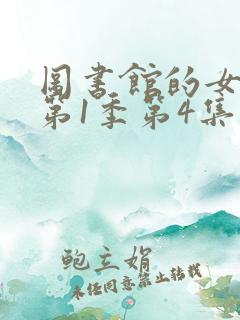 图书馆的女
第1季第4集
鲍立娟
未经同意禁止转载